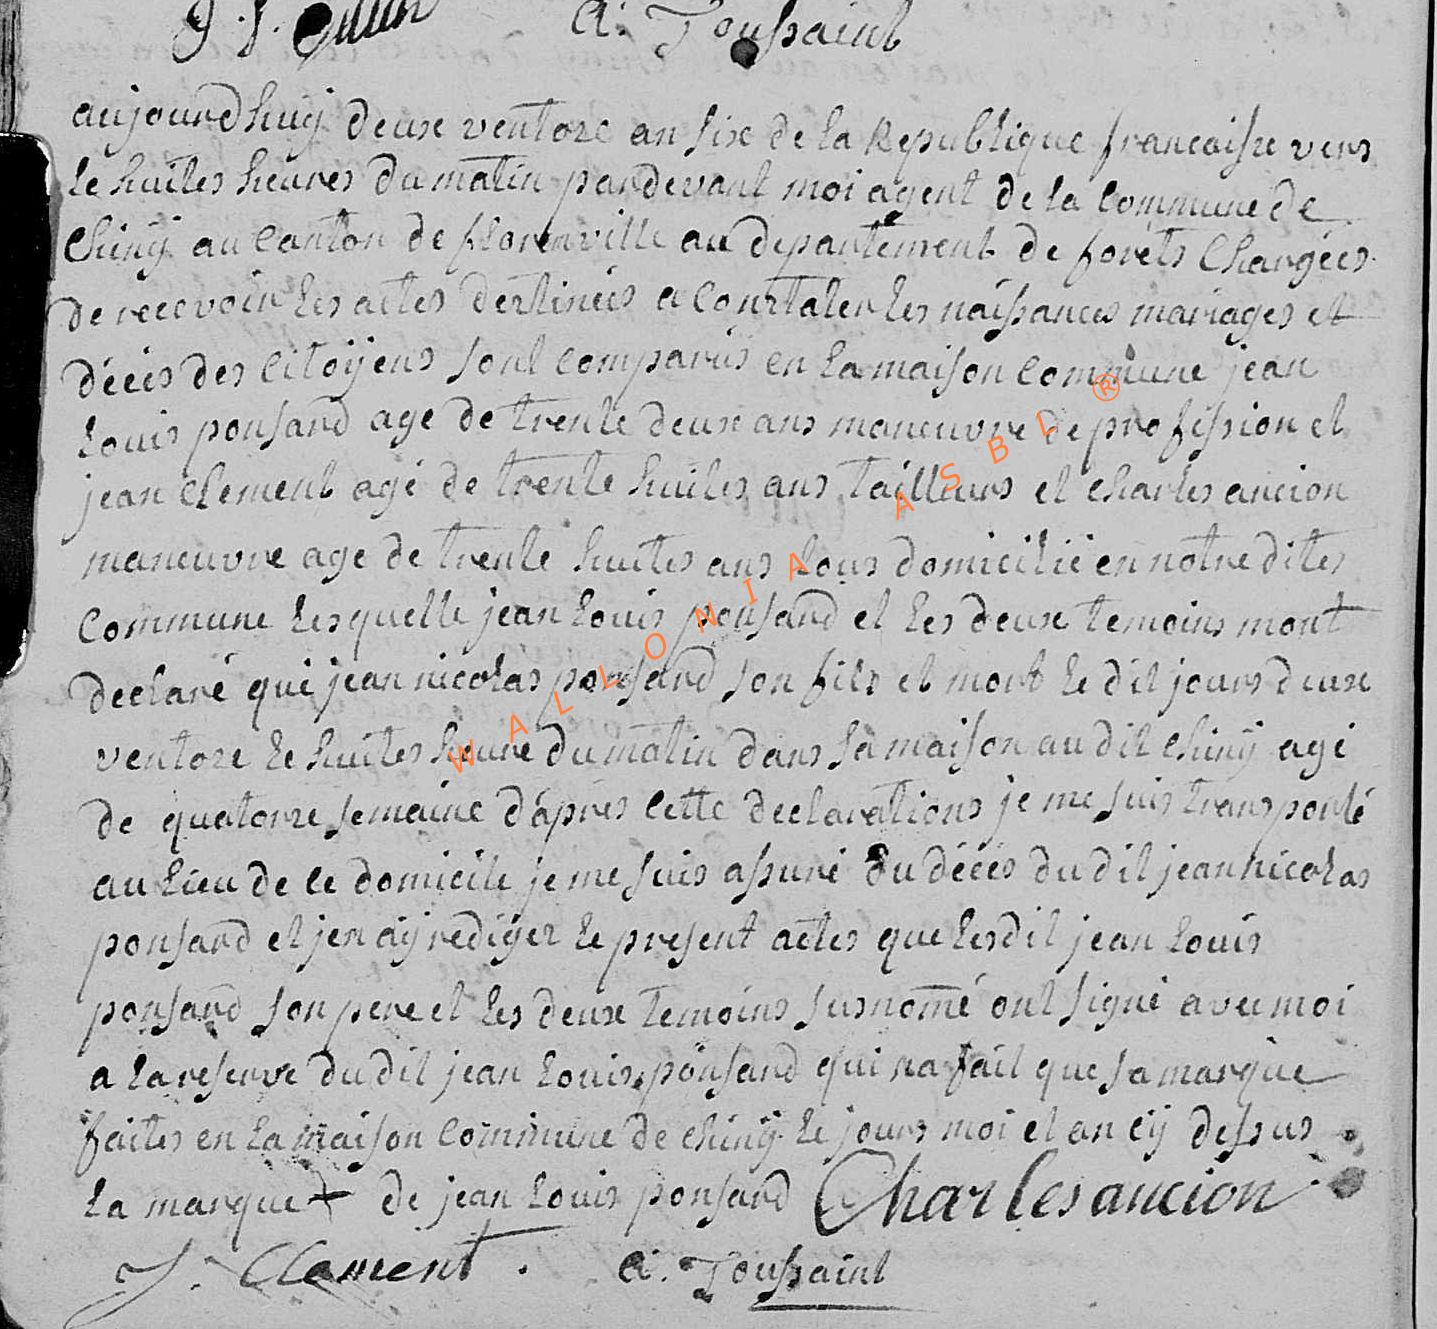 A. Toussaint
aujourdhuy deux ventoze an six de la Republique francaisse vers
le huites heures du matin pardevant moi agent de la Commune de
Chiny au Canton de florenville au departement de forêts Chargées
de recevoir les actes destinées a Constater les naissances mariages et
décès des Citoÿens sont comparus en la maison Commune jean
Louis ponsard age de trente deux ans maneuvre de profission et
jean Clement agé de trente huites ans tailleurs et charles ancion
maneuvre age de trente huites ans tous domicilié en notre dites
Commune lesquelle jean Louis ponsard et les deux temoins mont
declaré que jean nicolas ponsard son fils et mort le dit jours deux
ventoze le huites heure du matin dans sa maison au dit chiny agé
de quatorze semaine d'après cette declarations je me suis transporté
au lieu de ce domicile je me suis assuré du décès du dit jean nicolas
ponsard et jen aÿ rediger le present actes que lesdit jean Louis
ponsard son pere et les deux temoins susnomé ont signé avec moi
a la reserve du dit jean Louis ponsard qui na fait que sa marque
faites en la maison Commune de chiny le jours moi et an cÿ dessus
la marque + de jean Louis ponsard Charles ancion
J. Clament . A. Toussaint
WALLONIA ASBL ®